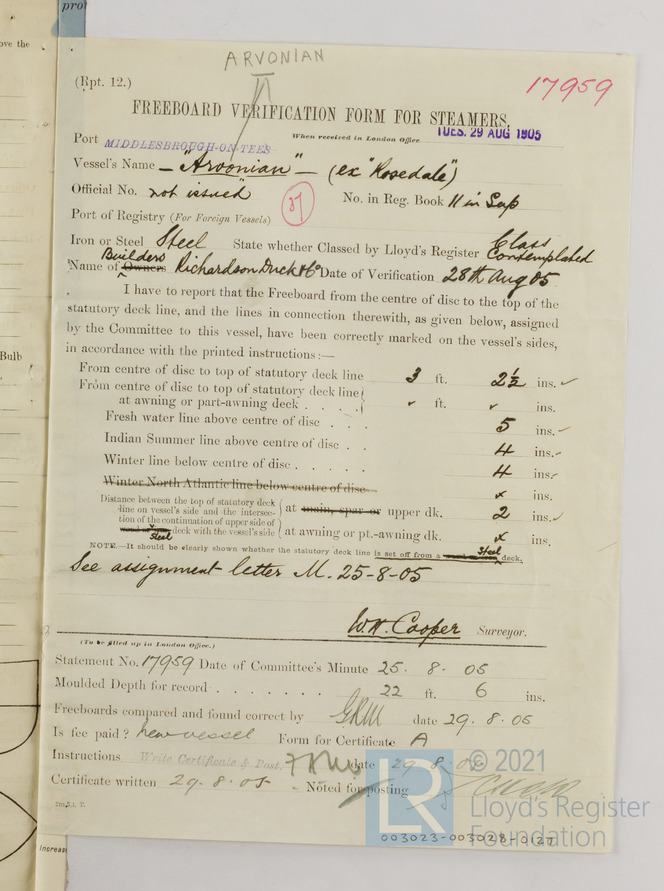 pro
ove the
Bulb
Increase
ARVONIAN
(Rpt. 12.)
17959
FREEBOARD VERIFICATION FORM FOR STEAMERS.
When received in London Office TUES. 29 AUG 1905
Port MIDDLESBROUGH-ON-TEES
Vessel's Name – "Arvonian" – (ex "Rosedale")
Official No. not issued
No. in Reg. Book 11 in Sup
37
Port of Registry (For Foreign Vessels)
Iron or Steel Steel State whether Classed by Lloyd's Register Class Contemplated
Builders
Name of Owners Richardson Duck & Co Date of Verification 28th Aug 05
I have to report that the Freeboard from the centre of disc to the top of the
statutory deck line, and the lines in connection therewith, as given below, assigned
by the Committee to this vessel, have been correctly marked on the vessel's sides,
in accordance with the printed instructions:—
From centre of disc to top of statutory deck line 3 ft. 2½ ins. ✓
From centre of disc to top of statutory deck line
at awning or part-awning deck . . . . ✓ ft. ✓ ins.
Fresh water line above centre of disc . . . 5 ins. ✓
Indian Summer line above centre of disc . . 4 ins. ✓
Winter line below centre of disc . . . . . 4 ins. ✓
Winter North Atlantic line below centre of disc x ins.
Distance between the top of statutory deck
line on vessel's side and the intersec-
tion of the continuation of upper side of
wood or iron deck with the vessel's side
Steel
at main, spar or upper dk. 2 ins. ✓
at awning or pt.-awning dk. x ins.
NOTE.—It should be clearly shown whether the statutory deck line is set off from a Steel deck.
See assignment letter M. 25-8-05
W.H. Cooper Surveyor.
(To be filled up in London Office.)
Statement No. 17959 Date of Committee's Minute 25. 8. 05
Moulded Depth for record . . . . . . . 22 ft. 6 ins.
Freeboards compared and found correct by GRM date 29. 8. 05
Is fee paid? New vessel Form for Certificate A
Instructions Write Certificate & Post. date 29 8. 05
Certificate written 29. 8. 05 - Noted for posting
LR
© 2021
Lloyd's Register
Foundation
003023-003028-0127